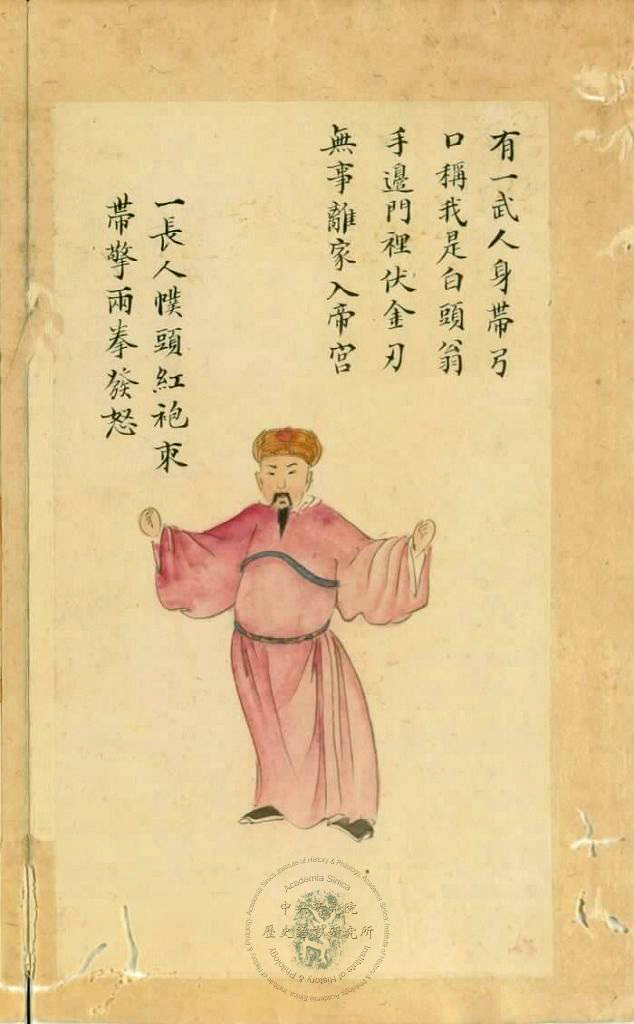 有一武人身帶弓
口稱我是白頭翁
手邊門裡伏金刃
無事離家入帝宮
一長人幞頭紅袍束
帶擎兩拳發怒
Academia Sinica
中央研究院
歷史語言研究所
Institute of History & Philology